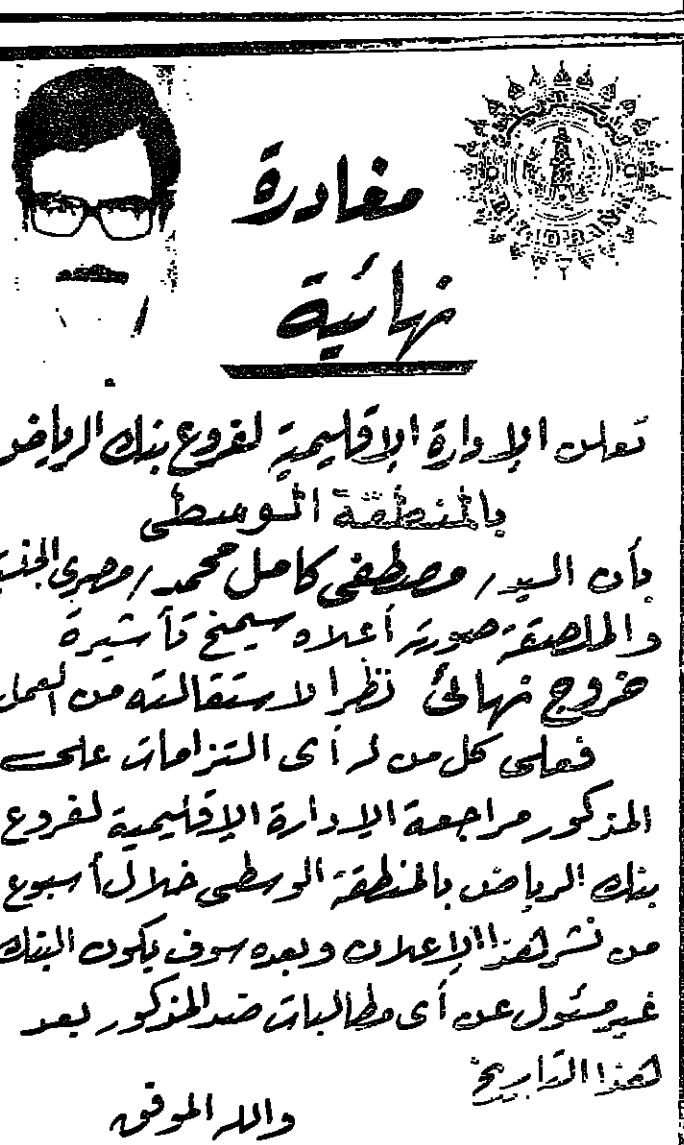 مغادرة
نهائية
تعلن الإدارة الإقليمية لفروع بنك الرياض
بالمنطقة الوسطى
بأن السيد/ مصطفى كامل محمد/ مصري الجنسية
والملصقة صورته أعلاه سيمنح تأشيرة
خروج نهائى نظرا لاستقالته من العمل
فعلى كل من له أى التزامات على
المذكور مراجعة الإدارة الإقليمية لفروع
بنك الرياض بالمنطقة الوسطى خلال أسبوع
من نشر هذا الإعلان وبعده سوف يكون البنك
غير مسئول عن أى مطالبات ضد المذكور بعد
هذا التاريخ
والله الموفق